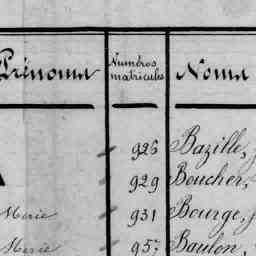 Prénoms Numéros matricules Noms
926 Bazille,
929 Boucher,
Marie 931 Bourge,
Marie 957 Baulon,